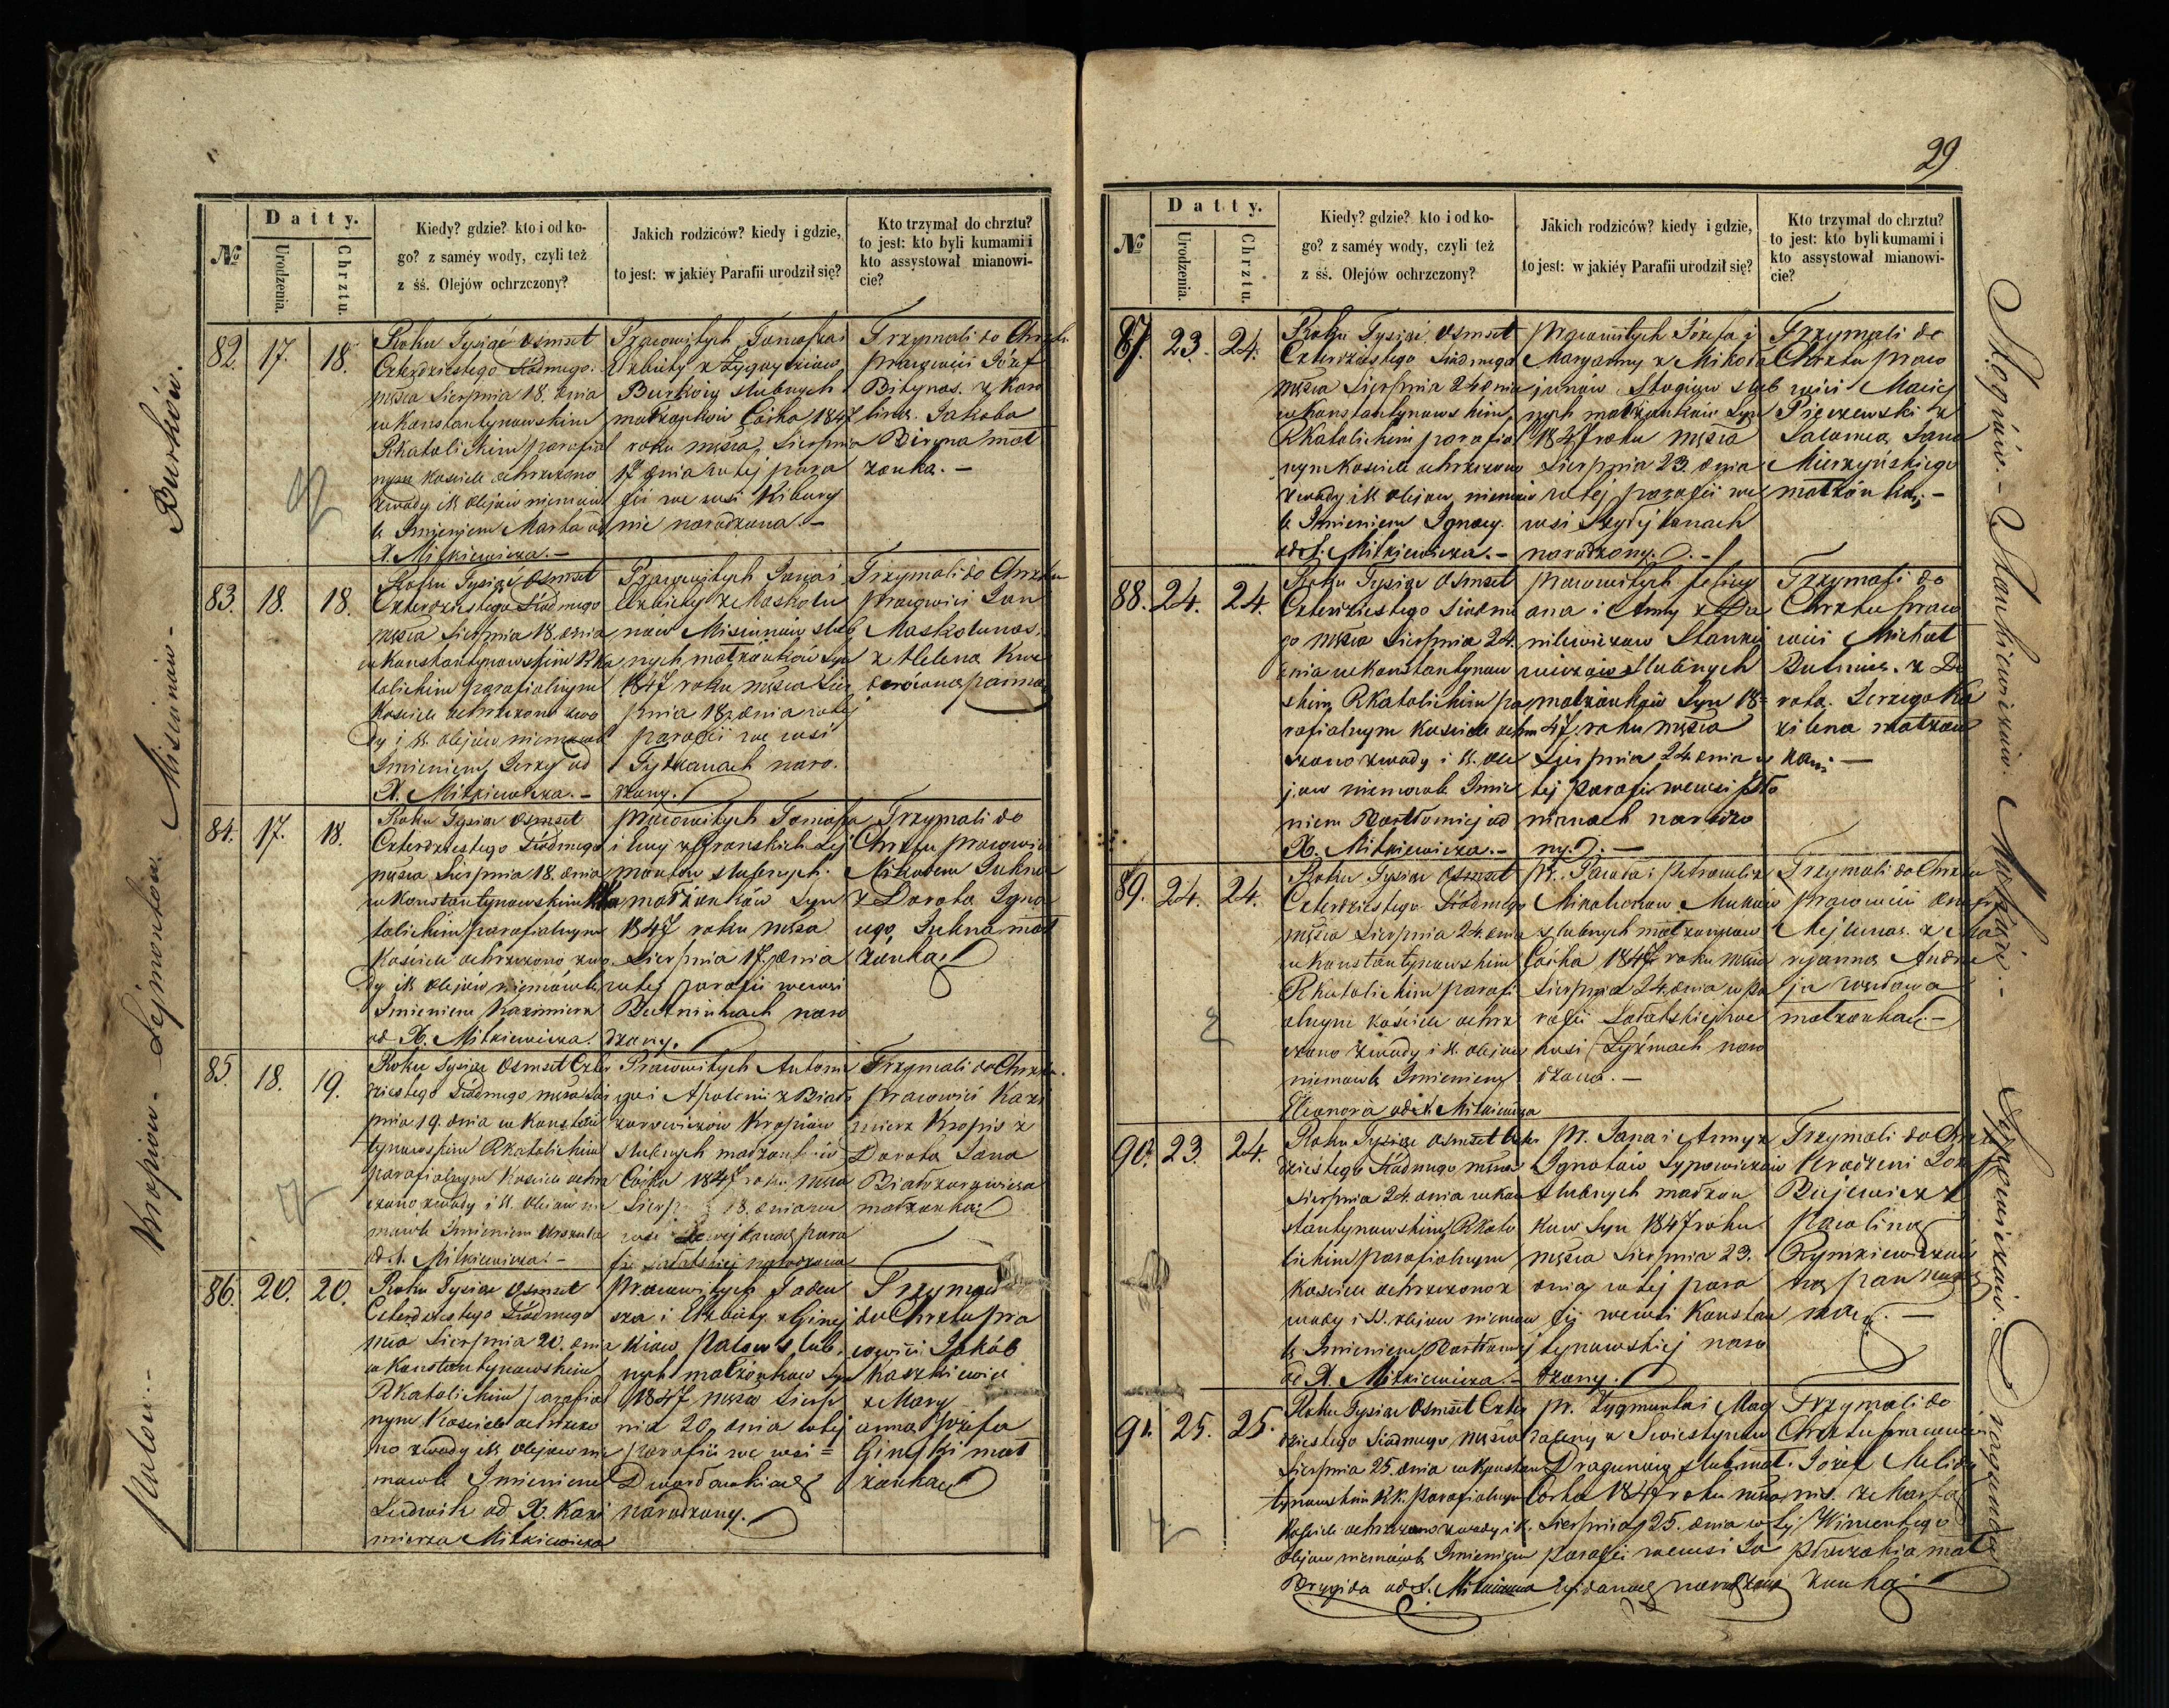 29
Datty.
№
Urodzenia.
Chrztu.
Kiedy? gdzie? kto i od ko-
go? z saméy wody, czyli też
z śś. Olejów ochrzczony?
Jakich rodziców? kiedy i gdzie,
to jest: w jakiéy Parafii urodził się?
Kto trzymał do chrztu?
to jest: kto byli kumami i
kto assystował mianowi-
cie?
Burków.
Misiunow -
Lejmontow
Kropiow -
Pulow. -
82. 17. 18.
Roku Tysiąc osmset
Czterdziestego Siódmego
msca Sierpnia 18. dnia
w Konstantynowskim
RKatolickim parafial
nym Kosciele ochrzczono
zwody i SS. olejow niemow
le Imieniem Marta od
X. Mitkiewicza. -
Pracowitych Tomasza i
Elzbiety z
Burkow slubnych
małżonków Córka 1847
roku msca Sierpnia
17 dnia w tej para
fii we wsi Kibury
nie narodzona. -
Trzymali do Chrztu
pracowici Józef
Bitynas. z Karo
lina Jakoba
Biryna mał
zonka. -
83. 18. 18.
Roku Tysiąc osmset
Czterdziestego Siódmego
msca Sierpnia 18. dnia
w Konstantynowskim RKa
tolickim parafialnym
Kosciele ochrzczono zwo
dy i SS. olejów niemowle
Imieniem Jerzy od
X. Mitkiewicza. -
Pracowitych Jana i
Elzbiety z Maskolu
nów Misiunów slub
nych małżonków Syn
1847 roku msca Sier
pnia 18 dnia w tej
parafii we wsi
Tytkanach naro
dzony.
Trzymali do Chrztu
pracowici Jan
Maskolunas.
z Helena Kwe
derowna panna
84. 17. 18.
Roku Tysiąc osmset
Czterdziestego Siódmego
msca Sierpnia 18. dnia
w Konstantynowskim RKa
tolickim parafialnym
Kosciele ochrzczono zwo
dy i SS. olejów niemówle
Imieniem Kazimierz
od X. Mitkiewicza.
pracowitych Tomasza
i Ewy z Granskich Lej
montow slubnych
małżonków Syn
1847 roku msca
Sierpnia 17. dnia
w tej parafii wewsi
Butniunach naro
dzony.
Trzymali do
Chrztu pracowici
Nikodem Juhna
z Dorota Igna
cego Juhna mał
żonka
85. 18. 19.
Roku Tysiąc Osmset Czter
dziestego Siódmego msca Sier
pnia 19. dnia w Konstan
tynowskim RKatolickim
parafialnym Kosciele ochrz
czono zwody i SS. olejów nie
mowle Imieniem Urszula
od X. Mitkiewicza. -
Pracowitych Antonie
go i Apolonii z Biało
zorowiczow Kropiow
slubnych małżonków
Córka 1847 roku msca
18. dnia we
wsi para
fii narodzona
Trzymali do Chrztu
pracowici Kazi
mierz Kropis z
Dorota Jana
Białozorowicza
małżonka
86. 20. 20.
Roku Tysiąc Osmset
Czterdziestego Siódmego
msca Sierpnia 20. dnia
w Konstantynowskim
RKatolickim parafial
nym Kosciele ochrzczo
no zwody i SS. olejow nie
mowle Imieniem
Ludwik od X. Kazi
mierza Mitkiewicza
Pracowitych Tadeu
sza i Elzbiety z Giniej
kiow Pulow slub
nych małżonkow Syn
1847 msca Sierp
nia 20 dnia w tej
parafii we wsi =
narodzony.
Trzymali
do Chrztu pra
cowici Jakób
Kaszkiewicz
z Mary
anna Józefa
mał
zonka
Stogiów. - Stankiewiczow. Mukiów. -
Sypowiczow. Dragunow
87. 23. 24.
Roku Tysiąc osmset
Czterdziestego Siódmego
msca Sierpnia 24 dnia
w Konstantynowskim
RKatolickim parafial
nym Kosciele ochrzczono
zwody i SS. olejow niemow
le Imieniem Ignacy.
od X. Mitkiewicza. -
pracowitych Józefa i
Maryanny z Mikoła
junów Stogiow slub
nych małżonków Syn
1847 roku msca
Sierpnia 23. dnia
w tej parafii we
wsi Szydejkanach
narodzony. -
Trzymali do
Chrztu praco
wici Maciej
Pieczewski z
Salomea Jana
Mierzyńskiego
małżonka; -
88. 24. 24.
Roku Tysiąc Osmset
Czterdziestego Siódme
go msca Sierpnia 24.
dnia w Konstantynow
skim RKatolickim pa
rafialnym Kosciele ochrz
czono zwody i SS. ole
jow niemowle Imie
niem Bartłomiej od
X. Mitkiewicza. -
pracowitych Felicy
ana i Anny z Da
nilewiczow Stankie
wiczow slubnych
małżonków Syn 18=
47. roku msca
Sierpnia 24. dnia w
tej parafii wewsi
narodzo
ny. -
Trzymali do
Chrztu praco
wici Michał
Butnius. z Do
rota Jerzego
małżon
ka; -
89. 24. 24.
Roku Tysiąc Osmset
Czterdziestego Siódmego
msca Sierpnia 24. dnia
w Konstantynowskim
RKatolickim parafi
alnym kościele ochrz
czono zwody i SS. olejow
niemowle Imieniem
Eleonora od X. Mitkiewicza
Pr. Pawła i Petroneli z
Mukiów
slubnych małzonkow
Córka 1847 roku msca
Sierpnia 24. dnia w pa
rafii we
wsi naro
dzona. -
Trzymali do Chrztu
pracowici
Mejlunas. z Ma
ryanna Andrze
ja
małzonka. -
90. 23. 24.
Roku Tysiąc osmset Czter
dziestego Siódmego msca
Sierpnia 24. dnia w Kon
stantynowskim RKato
lickim parafialnym
Kosciele ochrzczono z
wody i SS. olejow niemow
le Imieniem Bartłomiej
od X. Mitkiewicza. -
Pr. Jana i Anny z
Ignatow Sypowiczow
slubnych małżon
kow Syn 1847 roku
msca Sierpnia 23.
dnia w tej para
fii wewsi Konstan
tynowskiej naro
dzony.
Trzymali do Chrztu
Urodzeni
z
Karolina
Rymkiewiczow
na panna
91. 25. 25.
Roku Tysiąc Osmset Czter
dziestego Siódmego msca
Sierpnia 25. dnia w Konstan
tynowskim RK. parafialnym
Kosciele ochrzczono zwody i SS.
olejow niemówle Imieniem
Brygida od X. Mitkiewicza
Pr. Zygmunta i Mag
daleny z
Dragunow slub. mał.
Corka 1847 roku msca
Sierpnia 25. dnia w tej
parafii wewsi
narodzona
Trzymali do
Chrztu pracowici
Józef
z Marta
Wincentego
mał
żonka